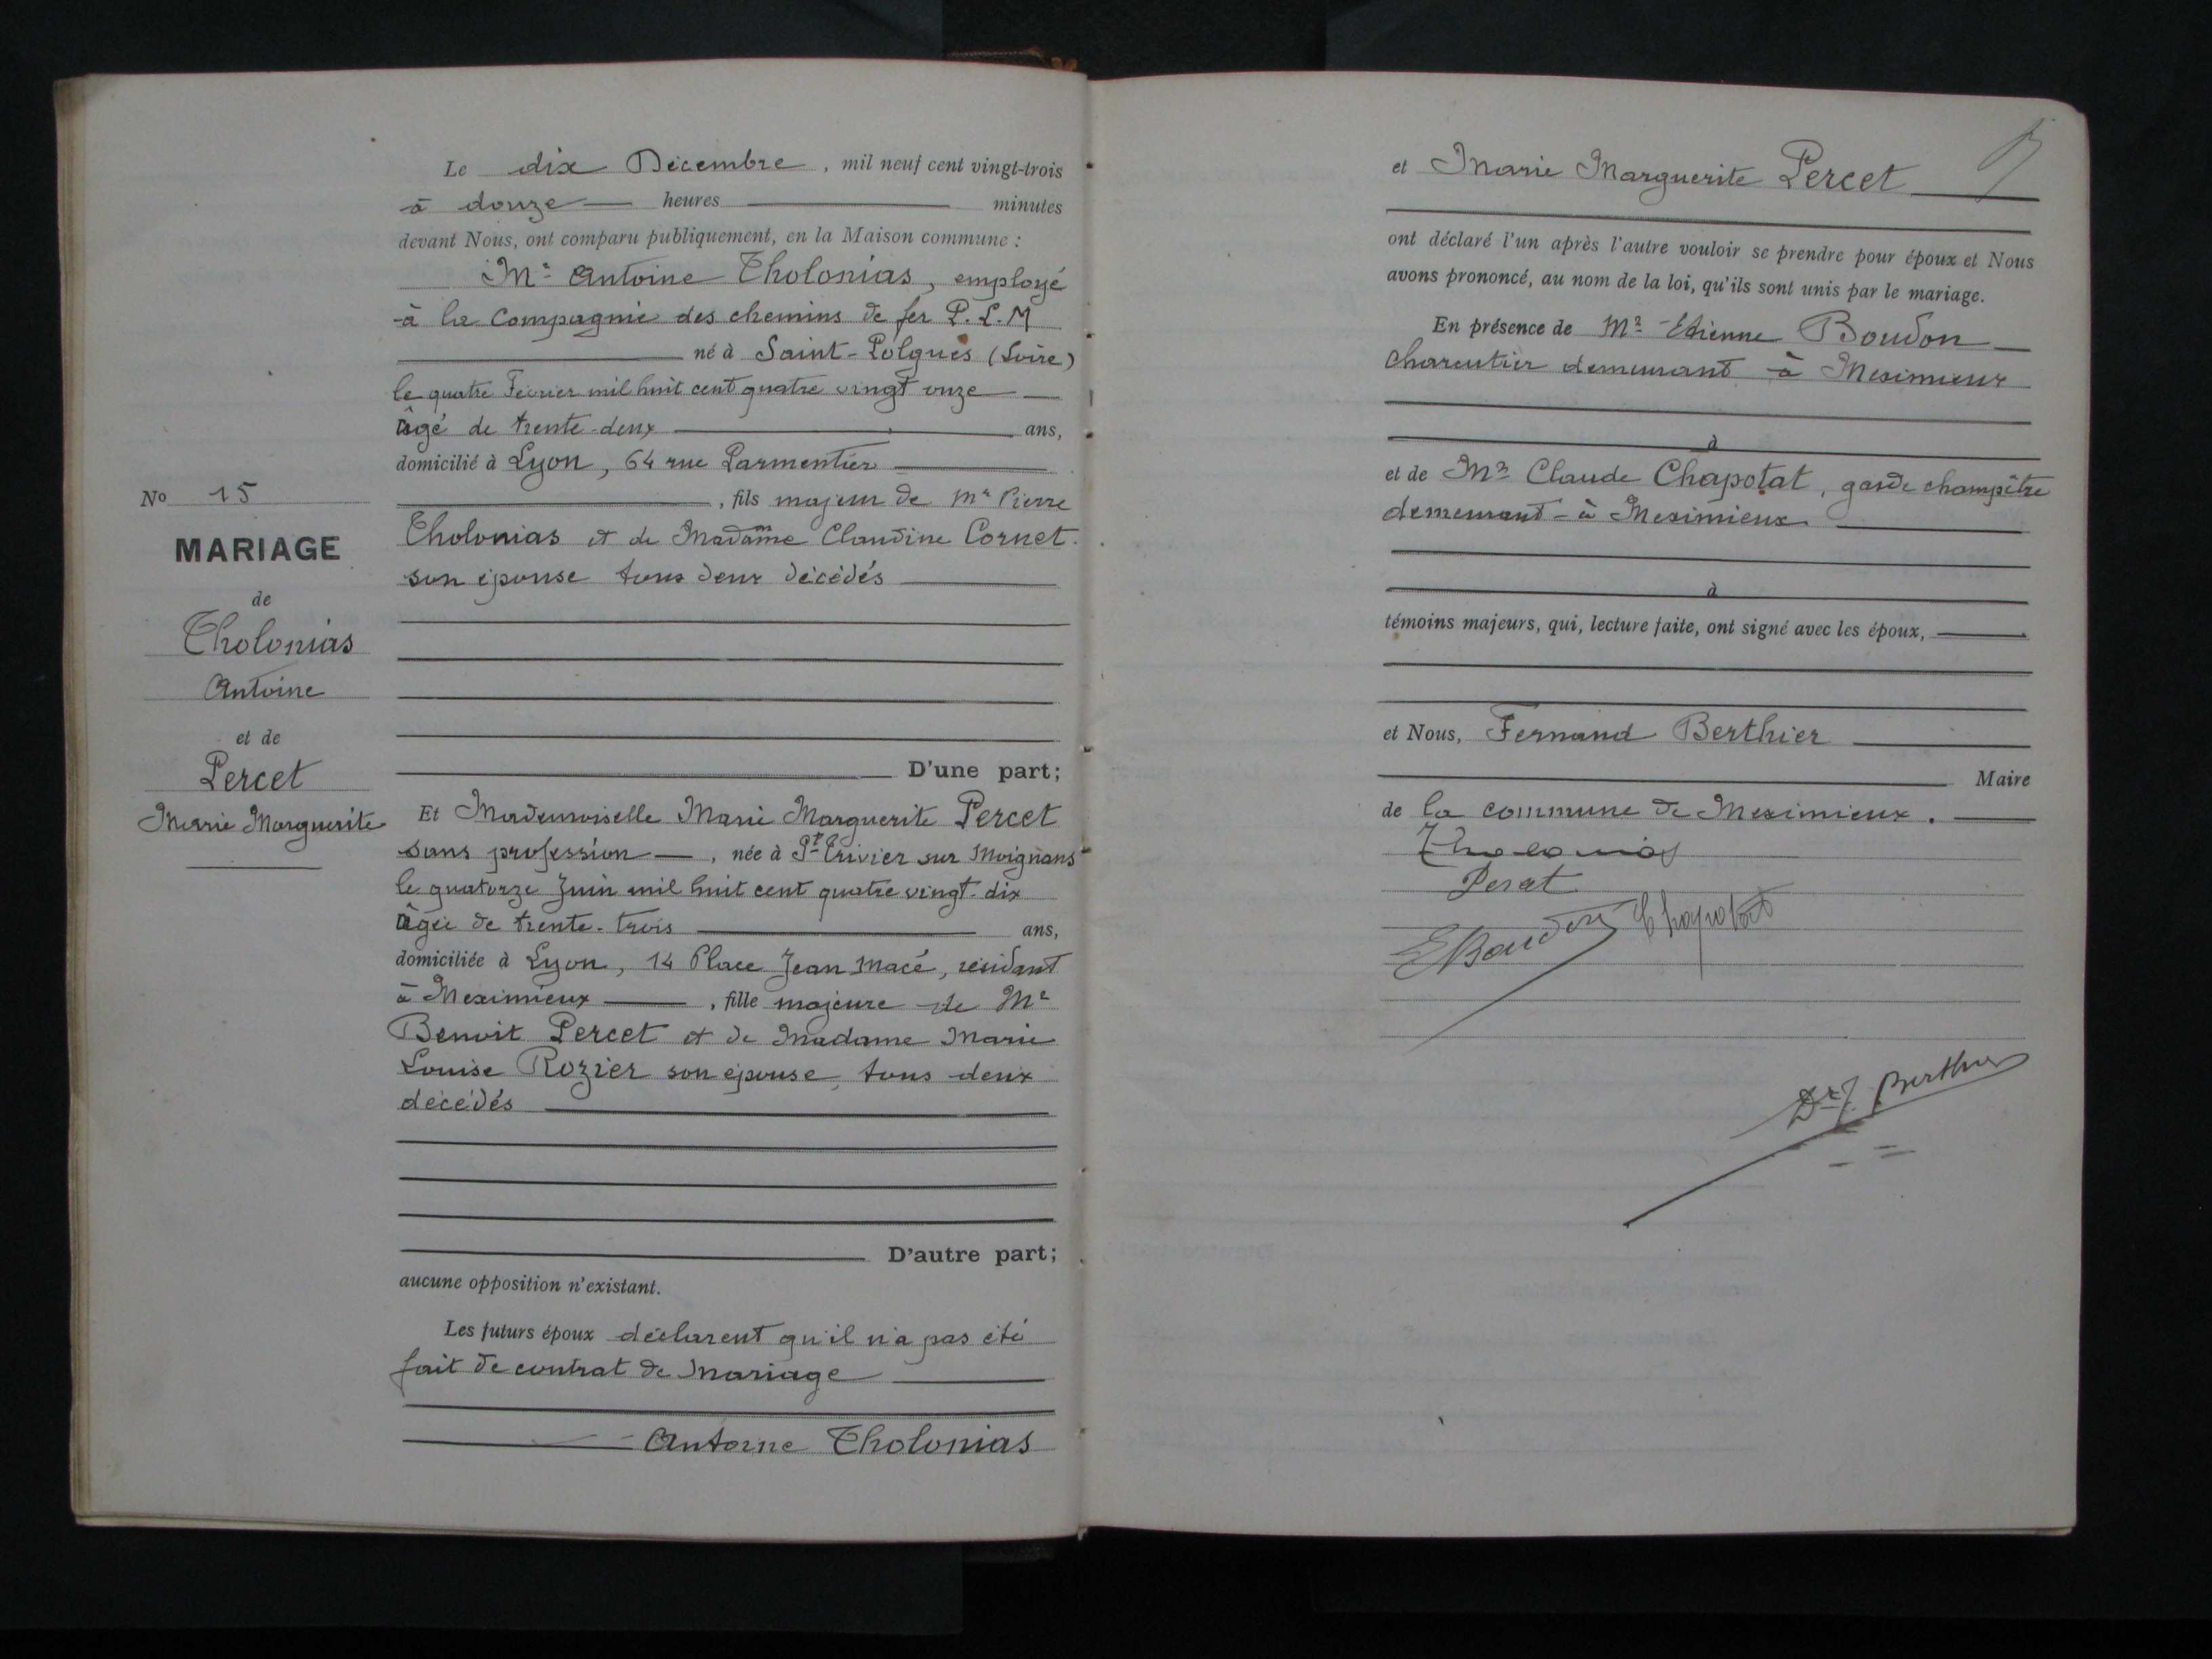 Le dix Décembre, mil neuf cent vingt-trois
à douze heures minutes
devant Nous, ont comparu publiquement, en la Maison commune :
Mr Antoine Tholonias, employé
à la Compagnie des chemins de fer P.L.M
né à Saint-Polgues (Loire)
le quatre Fevrier mil huit cent quatre vingt onze
âgé de trente-deux ans,
domicilié à Lyon, 64 rue Parmentier
, fils majeur de Mr Pierre
Tholonias et de Madame Claudine Cornet.
son épouse tous deux décédés
No 15
MARIAGE
de
Tholonias
Antoine
et de
Percet
Marie Marguerite
D'une part;
Et Mademoiselle Marie Marguerite Percet
sans profession, née à St Trivier sur Moignans
le quatorze Juin mil huit cent quatre vingt-dix
âgée de trente-trois ans,
domiciliée à Lyon, 14 Place Jean Macé, résidant
à Meximieux, fille majeure de Mr
Benoit Percet et de Madame Marie
Louise Rozier son épouse, tous deux
décédés
D'autre part;
aucune opposition n'existant.
Les futurs époux déclarent qu'il n'a pas été
fait de contrat de mariage
Antoine Tholonias
et Marie Marguerite Percet
ont déclaré l'un après l'autre vouloir se prendre pour époux et Nous
avons prononcé, au nom de la loi, qu'ils sont unis par le mariage.
En présence de Mr Etienne Boudon
charcutier demeurant à Meximieux
à
et de Mr Claude Chapotat, garde champêtre
demeurant à Meximieux
à
témoins majeurs, qui, lecture faite, ont signé avec les époux,
et Nous, Fernand Berthier
Maire
de la commune de Meximieux.
Tholonias
Percet
E Boudon Chapotat
Dr F. Berthier